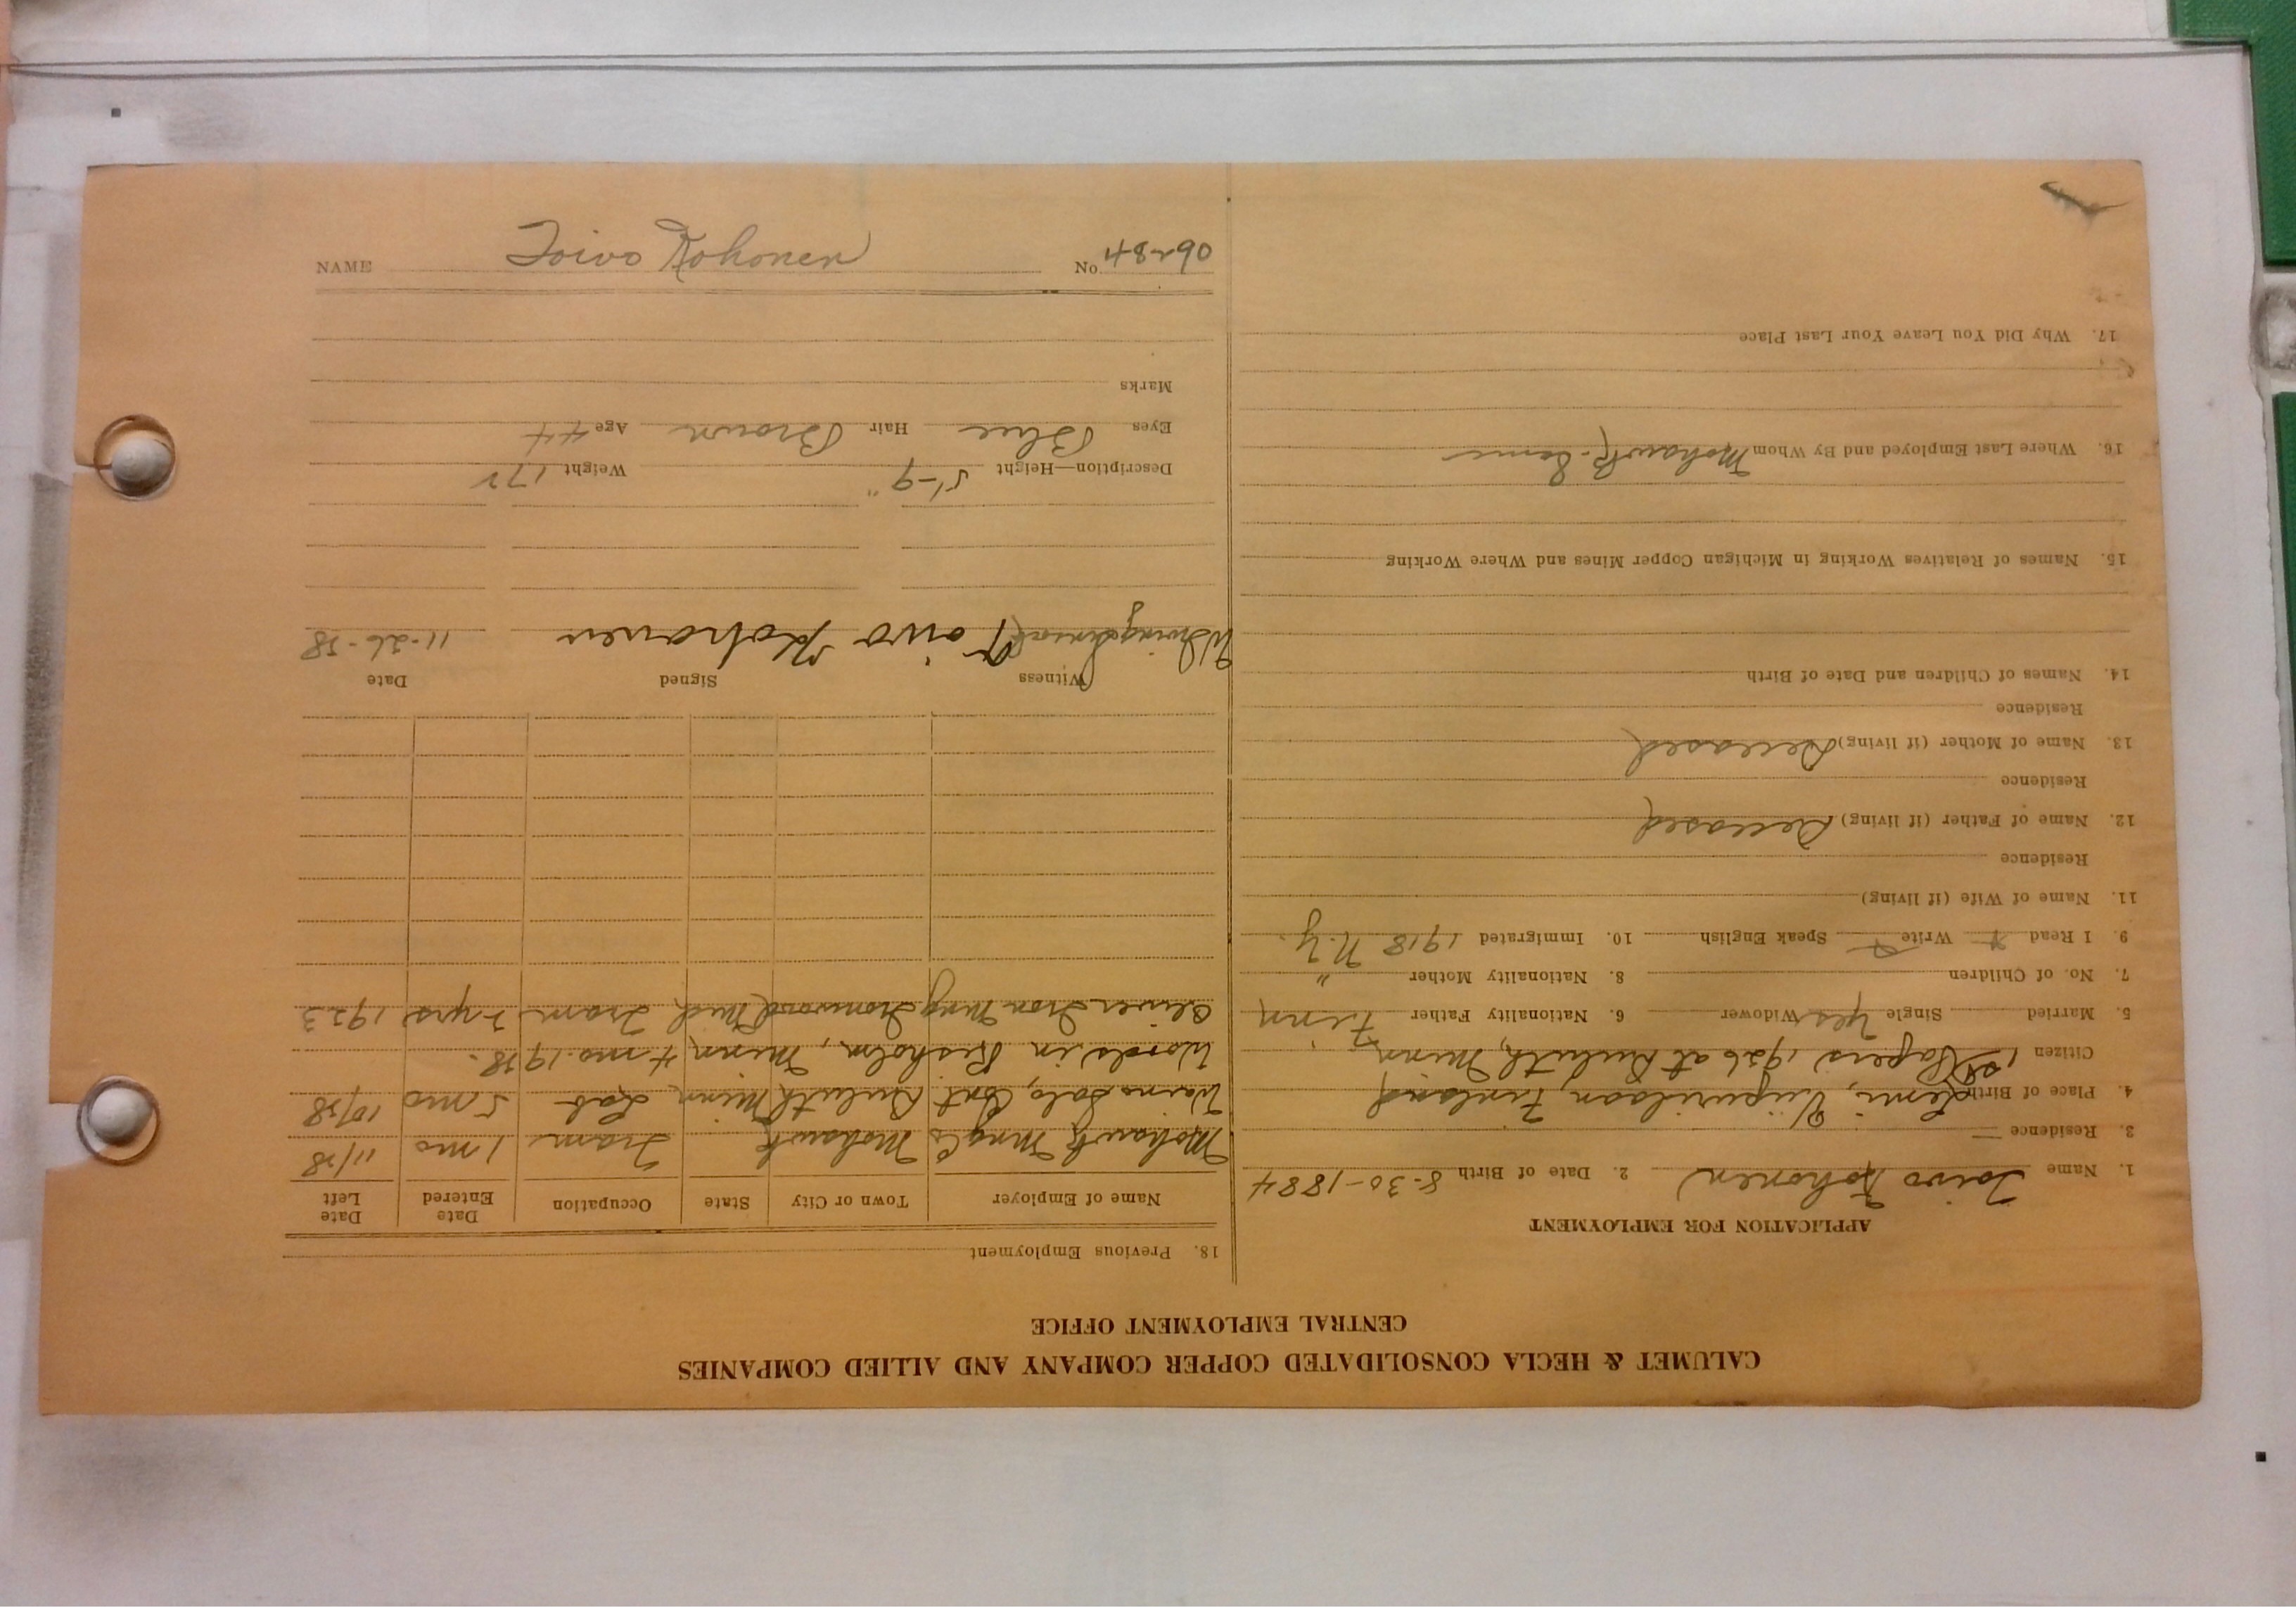 CALUMET & HECLA CONSOLIDATED COPPER COMPANY AND ALLIED COMPANIES
CENTRAL EMPLOYMENT OFFICE
APPLICATION FOR EMPLOYMENT
1. Name Toivo Kohonen 2. Date of Birth 8-30-1884
3. Residence —
4. Place of Birth Lemi, Viipurilaan, Finland
Citizen 1st Papers 1926 at Duluth, Minn
5. Married Single Yes Widower 6. Nationality Father Finn
7. No. of Children 8. Nationality Mother "
9. I Read Write Speak English 10. Immigrated 1918 N.Y.
11. Name of Wife (if living)
Residence
12. Name of Father (if living) Deceased
Residence
13. Name of Mother (if living) Deceased
Residence
14. Names of Children and Date of Birth
15. Names of Relatives Working in Michigan Copper Mines and Where Working
16. Where Last Employed and By Whom Mohawk-
17. Why Did You Leave Your Last Place
18. Previous Employment
Name of Employer Town or City State Occupation Date Entered Date Left
Mohawk Mng Co Mohawk Tram 1 mo 11/28
Waino Salo, Cont Duluth Minn Lab 5 mo 10/28
Woods in Chisholm, Minn 4 mo. 1928.
Oliver Iron Mng Ironwood Mich Tram 2 yrs 1923
Witness Signed Date
Toivo Kohonen 11-26-28
Description—Height 5'-9" Weight 172
Eyes Blue Hair Brown Age 44
Marks
NAME Toivo Kohonen No